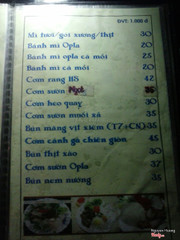 ĐVT: 1.000 đ
Mì trứng sương/thịt 30
Bánh mì Opla 20
Bánh mì opla cá mòi 25
Bánh mì cá mòi 20
Cơm rang HS 42
Cơm sườn 35
Cơm heo quay 30
Cơm sườn nướng sả 35
Bún măng vịt xiêm (T7+CN) 35
Cơm cánh gà chiên giòn 45
Bún thịt xào 30
Cơm sườn Opla 37
Bún nem nướng 35